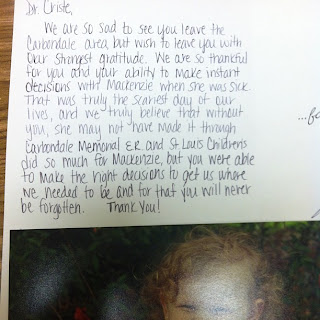 Dr. Criste,
We are so sad to see you leave the
Carbondale area, but wish to leave you with
our strongest gratitude. We are so thankful
for you and your ability to make instant
decisions with Mackenzie when she was sick.
That was truly the scariest day of our
lives, and we truly believe that without
you, she may not have made it through.
Carbondale Memorial E.R. and St Louis Children's
did so much for Mackenzie, but you were able
to make the right decisions to get us where
we needed to be and for that you will never
be forgotten. Thank You!